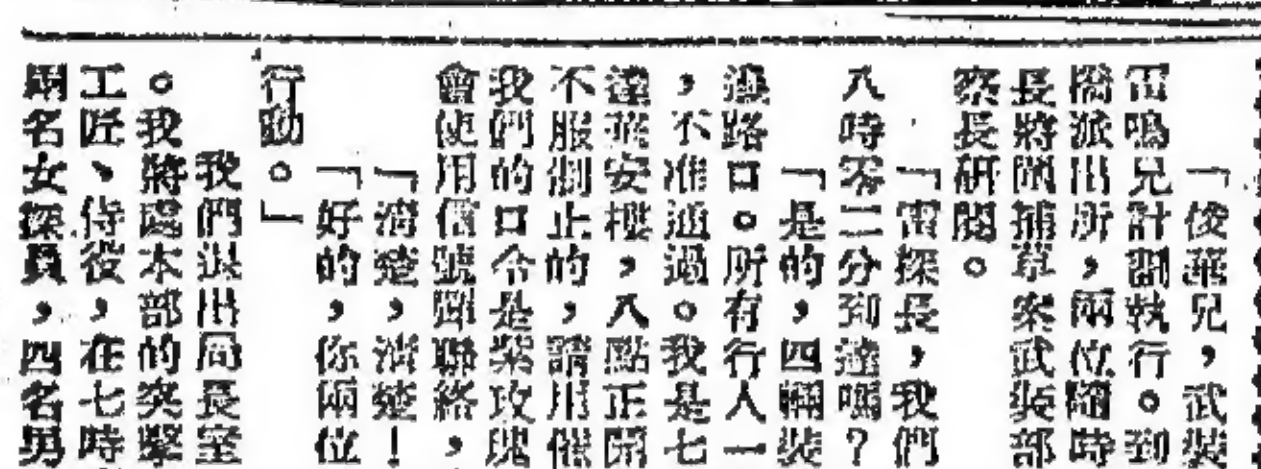 「俊華兄，武裝
雷鳴兄計劃執行。到
橋派出所，兩位隨時
長將圍捕草案武裝部
察長研閱。
「雷探長，我們
八時零二分到達嗎？
「是的，四輛裝
路口。所有行人一
，不准通過。我是七
達萊安樓，八點正開
不服制止的，請用催
我們的口令是紫玫瑰
會使用信號彈聯絡，
「清楚，清楚！
「好的，你兩位
行動。」
我們退出局長室
。我將處本部的突擊
工匠、侍役，在七時
兩名女探員，四名男